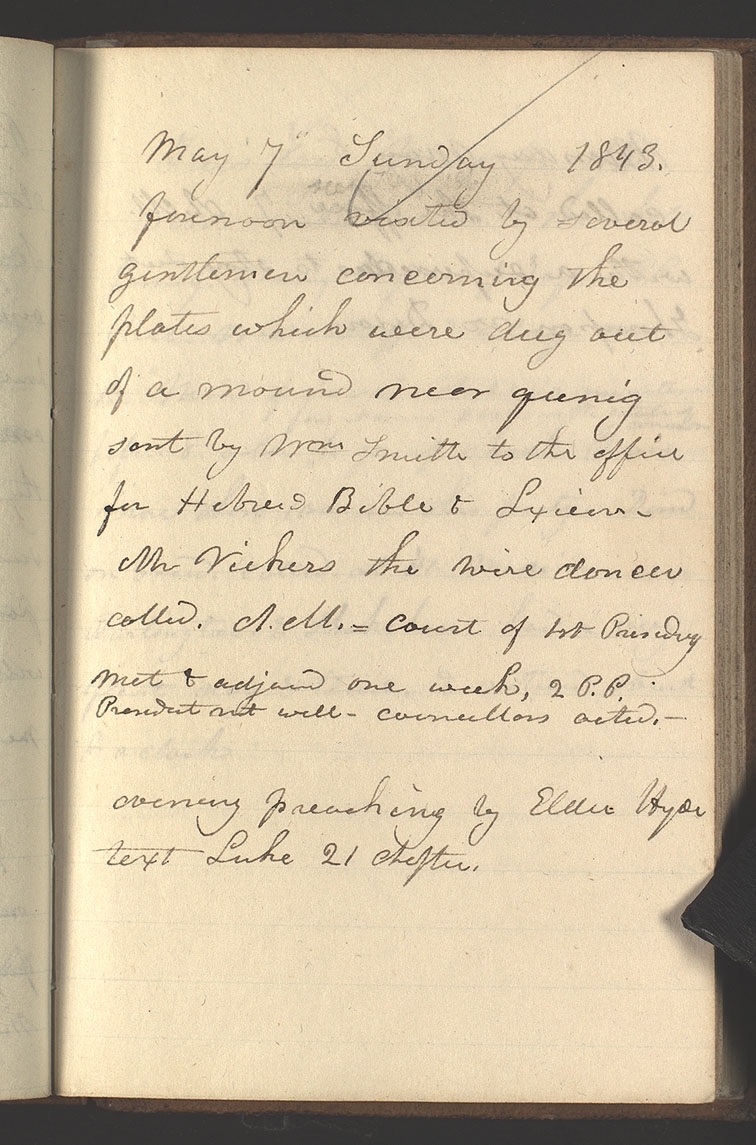 May 7 Sunday 1843.
forenoon visited by several
gentlemen concerning the
plates which were dug out
of a mound near quinig
sent by Wm Smith to the office
for Hebrew Bible & Lxicon-
Mr Vickers the wire dancer
called. A.M. = court of 1st Presidncy
met & adjound one week, 2 P.P.
President not well - councillors acted. -
evening preaching by Elder Hyde
text Luke 21 chapter.